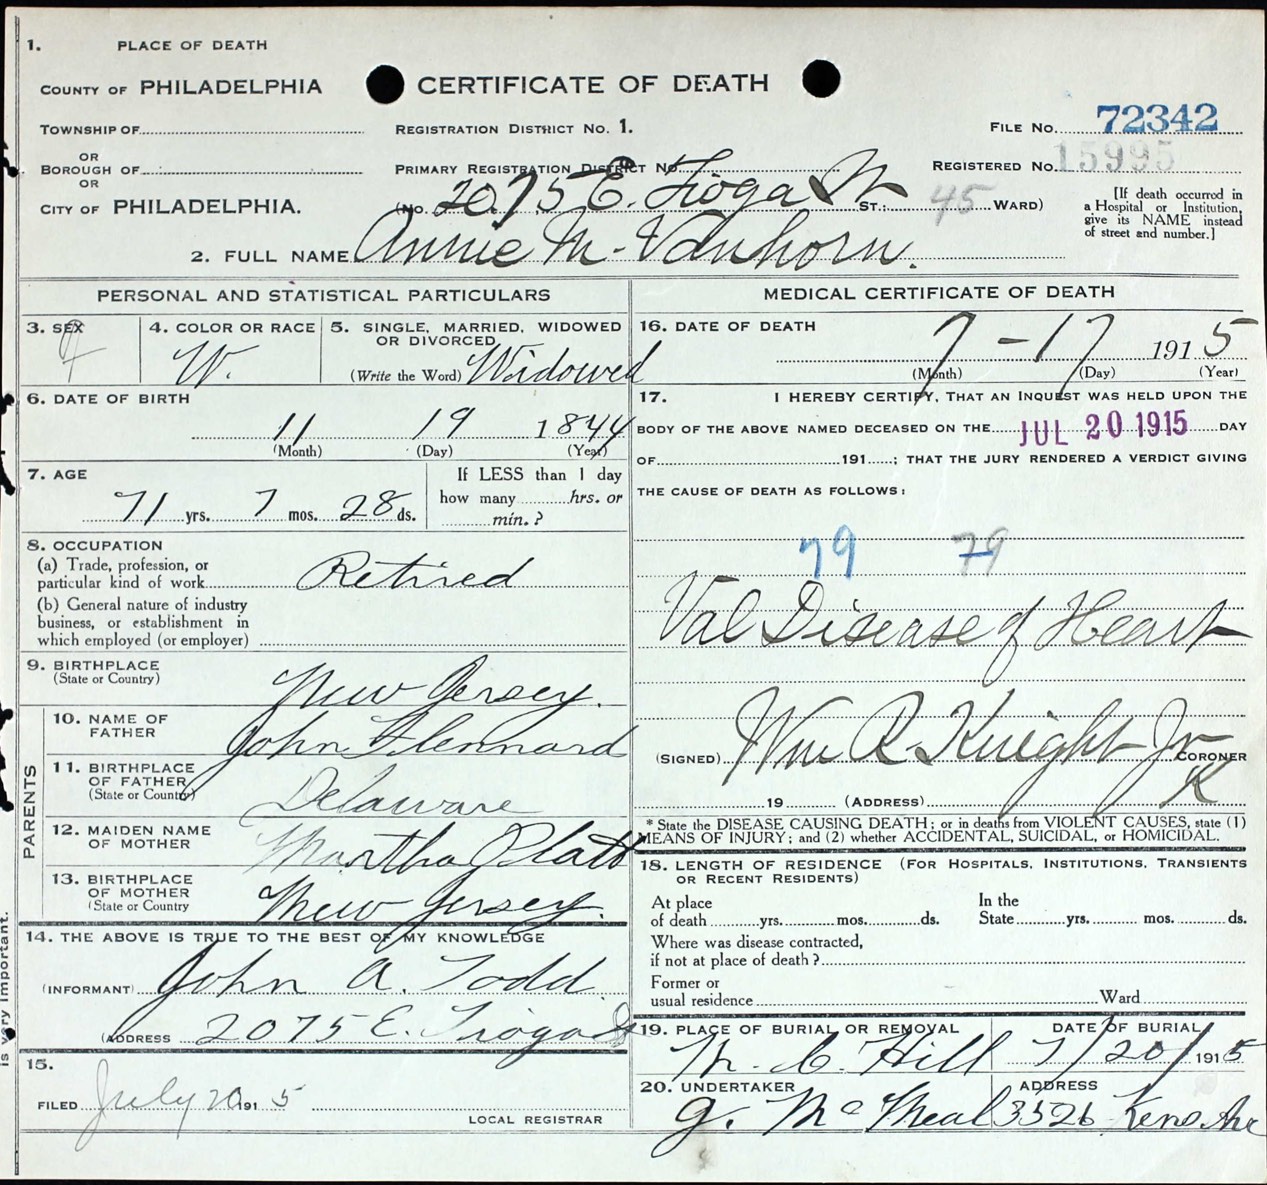 1. PLACE OF DEATH
COUNTY OF PHILADELPHIA
CERTIFICATE OF DEATH
TOWNSHIP OF
REGISTRATION DISTRICT No. 1.
FILE No. 72342
OR
BOROUGH OF
PRIMARY REGISTRATION DISTRICT No.
REGISTERED No. 15995
OR
CITY OF PHILADELPHIA.
(No. 2075 E. Tioga St ST.; 45 WARD)
[If death occurred in a Hospital or Institution, give its NAME instead of street and number.]
2. FULL NAME Annie M. Vanhorn.
PERSONAL AND STATISTICAL PARTICULARS
3. SEX F
4. COLOR OR RACE W.
5. SINGLE, MARRIED, WIDOWED OR DIVORCED
(Write the Word) Widowed
6. DATE OF BIRTH
11 19 1844
(Month) (Day) (Year)
7. AGE
71 yrs. 7 mos. 28 ds.
If LESS than 1 day
how many hrs. or
min.?
8. OCCUPATION
(a) Trade, profession, or
particular kind of work Retired
(b) General nature of industry
business, or establishment in
which employed (or employer)
9. BIRTHPLACE
(State or Country) New Jersey.
PARENTS
10. NAME OF FATHER John Flennard
11. BIRTHPLACE OF FATHER
(State or Country) Delaware
12. MAIDEN NAME OF MOTHER Martha Platt
13. BIRTHPLACE OF MOTHER
(State or Country New Jersey.
14. THE ABOVE IS TRUE TO THE BEST OF MY KNOWLEDGE
(INFORMANT) John A. Todd
(ADDRESS 2075 E. Tioga St
15.
FILED July 20 191 5
LOCAL REGISTRAR
is very important.
MEDICAL CERTIFICATE OF DEATH
16. DATE OF DEATH
7 - 17 1915
(Month) (Day) (Year)
17. I HEREBY CERTIFY, THAT AN INQUEST WAS HELD UPON THE
BODY OF THE ABOVE NAMED DECEASED ON THE JUL 20 1915 DAY
OF 191 ; THAT THE JURY RENDERED A VERDICT GIVING
THE CAUSE OF DEATH AS FOLLOWS:
79 79
Val Disease of Heart
(SIGNED) Wm R Knight Jr CORONER
K
19 (ADDRESS)
* State the DISEASE CAUSING DEATH; or in deaths from VIOLENT CAUSES, state (1)
MEANS OF INJURY; and (2) whether ACCIDENTAL, SUICIDAL, or HOMICIDAL.
18. LENGTH OF RESIDENCE (FOR HOSPITALS, INSTITUTIONS, TRANSIENTS
OR RECENT RESIDENTS)
At place
of death yrs. mos. ds.
In the
State yrs. mos. ds.
Where was disease contracted,
if not at place of death?
Former or
usual residence Ward
19. PLACE OF BURIAL OR REMOVAL
M. C. Hill
DATE OF BURIAL
7/20/1915
20. UNDERTAKER
ADDRESS
3526 Kens. Ave